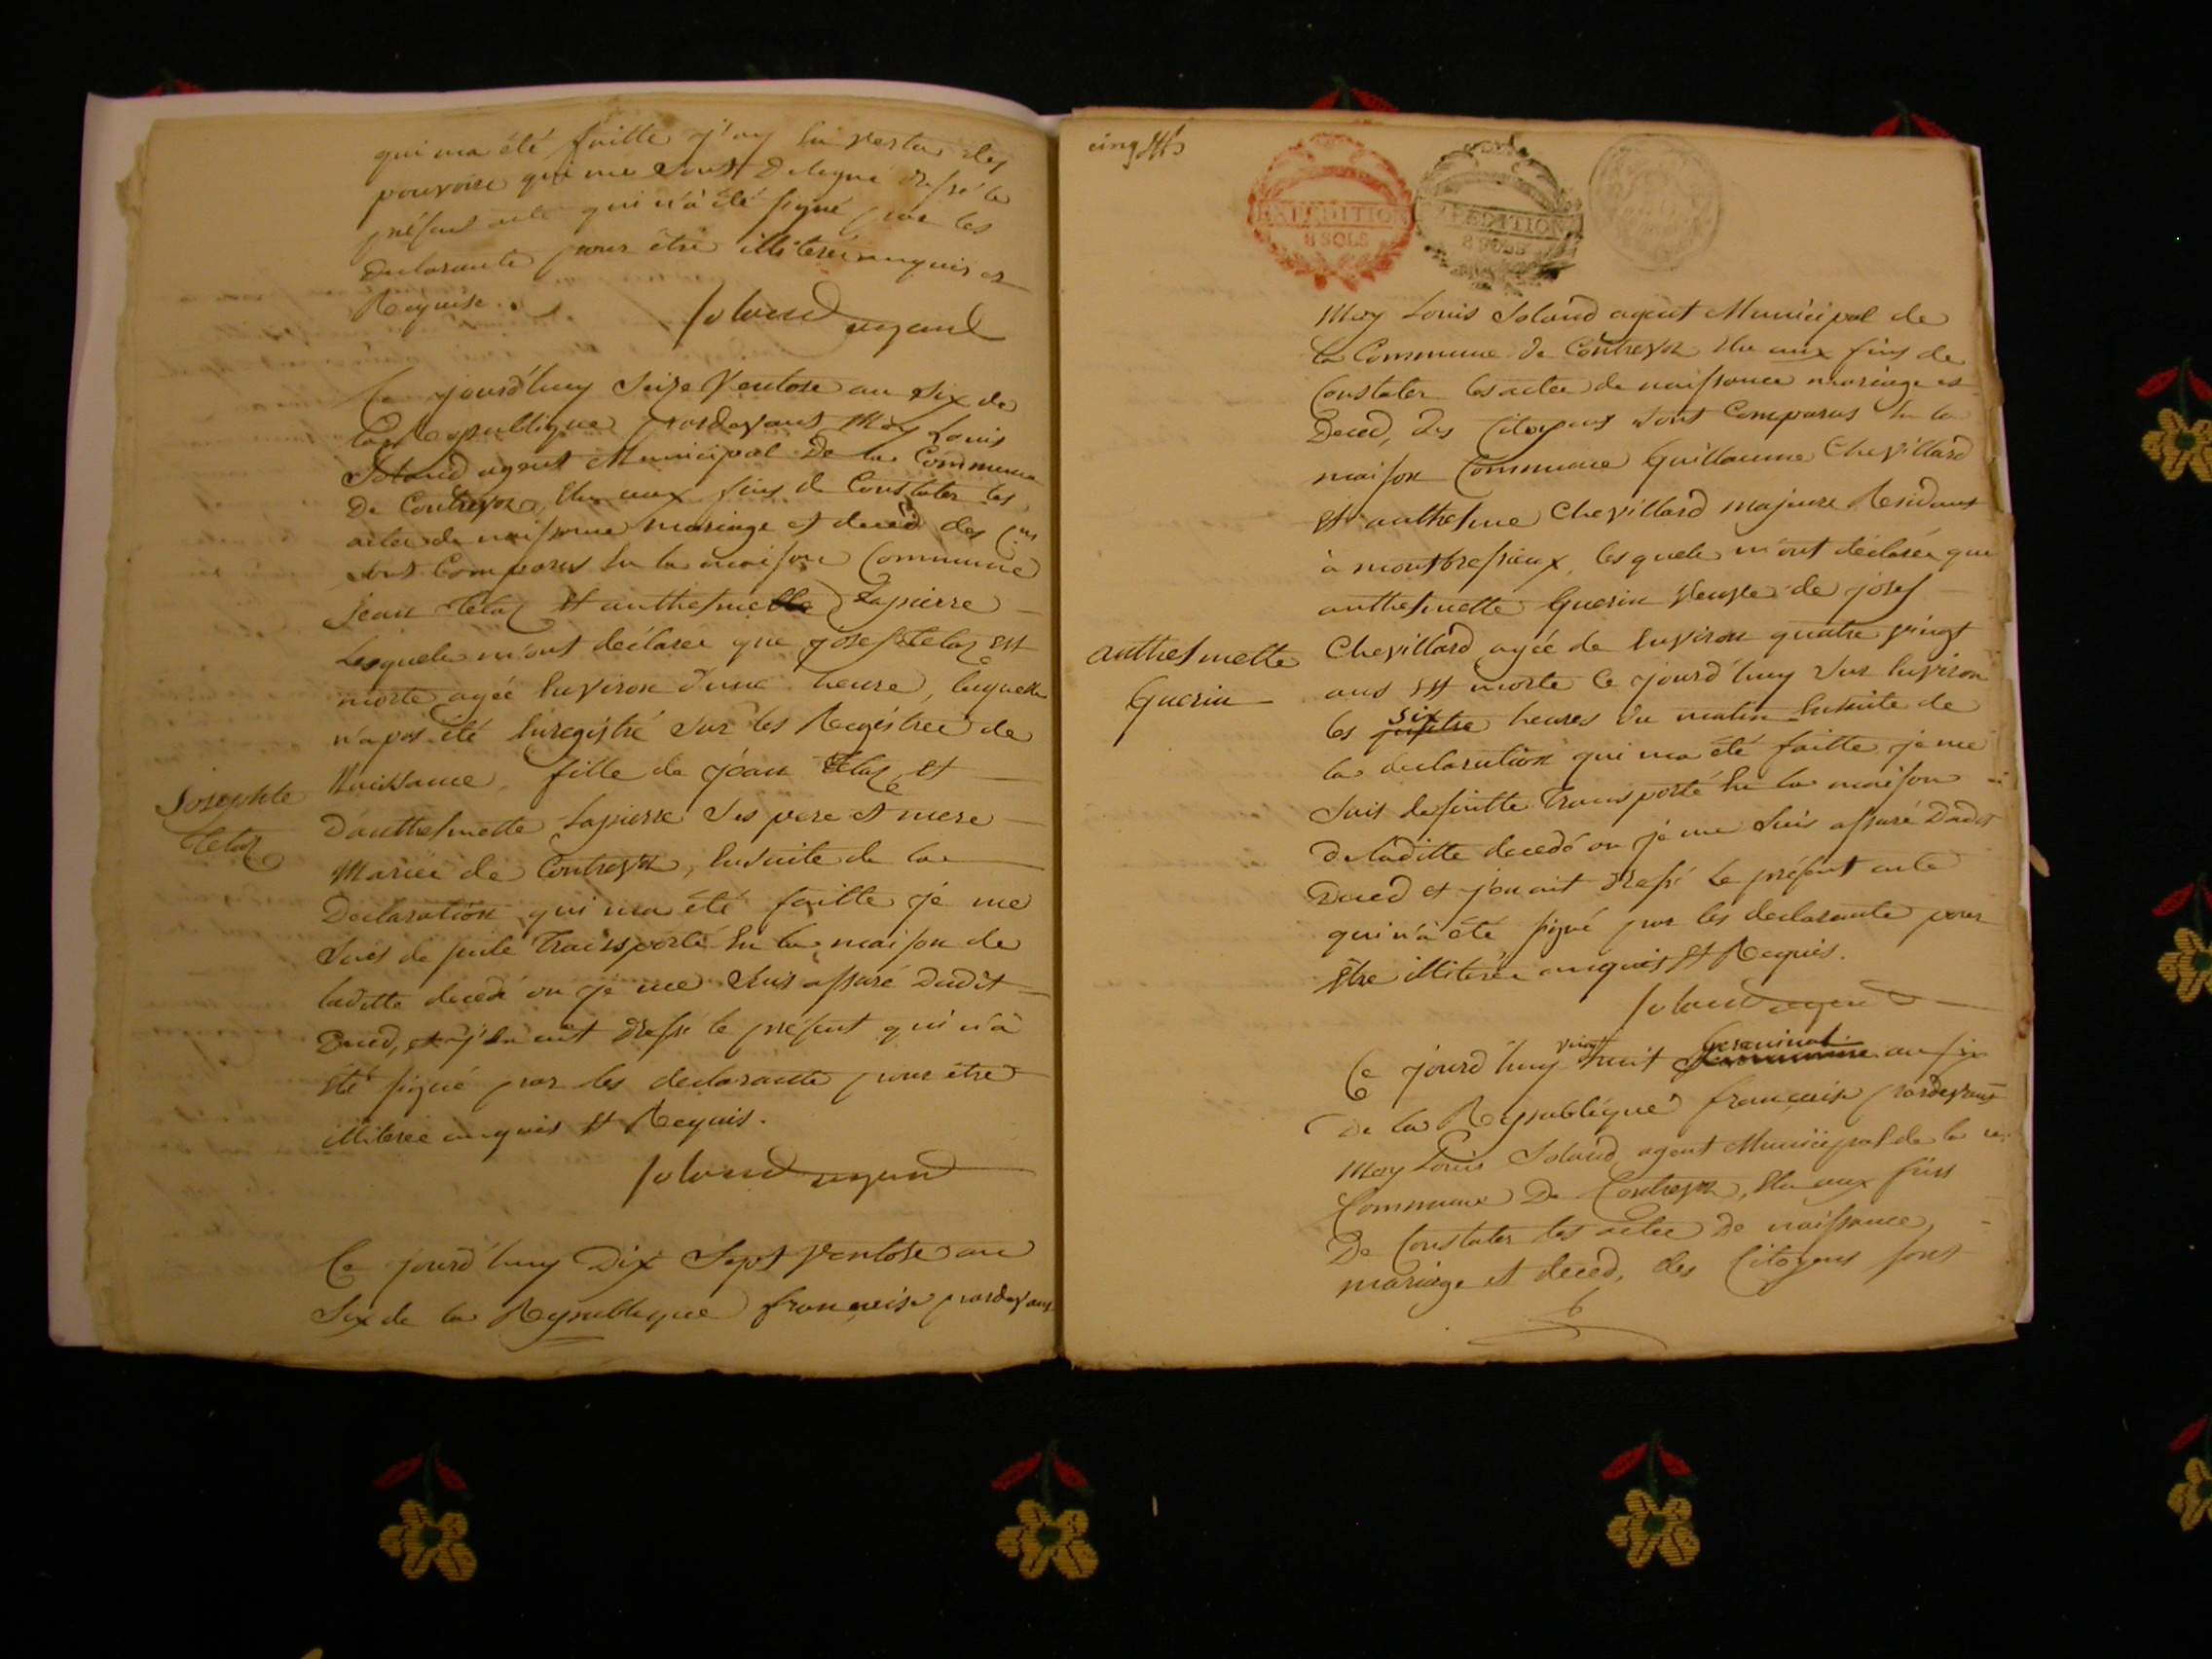 qui ma été faitte j'ay En Vertu des
pouvoire qui me sont Delegué dressé le
présent acte qui n'a été signé par les
Declarante pour être illiteré enquis et
Requise.
Soland agent
Ce jourd'huy Seize Ventose an Six de
la Republique pardevant Moy Louis
Soland agent Municipal De la Commune
De Contrevoz, Elu aux fins de Constater les
actes de naissance mariage et decéd des
sont Comparus En la maison Commune
Jean Tetaz Et anthelme Lapierre
Lesquels m'ont déclaree que josef Tetaz est
morte agée Environ d'une heure, laquelle
n'a pas été Enregistré sur les Regéstree de
Naissance, fille de jéan Tetaz et
Josephte
Tetaz
D'anthelmette Lapierre Ses pere et mere
Mariée de Contrevoz, Ensuite de la
Declaration qui ma été faitte je me
Suis de suite Transporté En la maison de
laditte decedé ou je me Suis assuré Dudit
Deced, et j'En ait dressé le présent qui n'a
été signé par les declarante pour être
illiterée enquis Et Requis.
Soland agent
Ce jourd'huy Dix Sept Ventose an
Six de la Republique française pardevant
cinq
EXPEDITION
8 SOLS
EXPEDITION
8 SOLS
Moy Louis Soland agent Municipal de
la Commune de Contrevoz Elu aux fins de
Constater les actee de naissance mariage et
Deced, des Citoyens sont Comparus En la
maison Commune Guillaume Chevillard
Et anthelme Chevillard majeure Residant
à montbressieux, lesquels m'ont declarée que
anthelmette Guerin Veuve de josef
anthelmette
Guerin
Chevillard agée de Environ quatre vingt
ans Est morte Ce jourd'huy sur Environ
six
les quatre heures du matin Ensuite de
la declaration qui ma été faitte je me
Suis de suitte Transporté En la maison
De laditte decedé ou je me Suis assuré Dudit
Deced et j'en ait dressé le présent acte
qui n'a été signé par les declarante pour
Etre illiterée enquis Et Requis.
Soland agent
vingt Germinal
Ce jourd'huy huit an six
De la Republique française pardevant
Moy Louis Soland agent Municipal de la
Commune De Contrevoz, Elu aux fins
De Constater les actee De naissance,
mariage et deced, des Citoyens sont